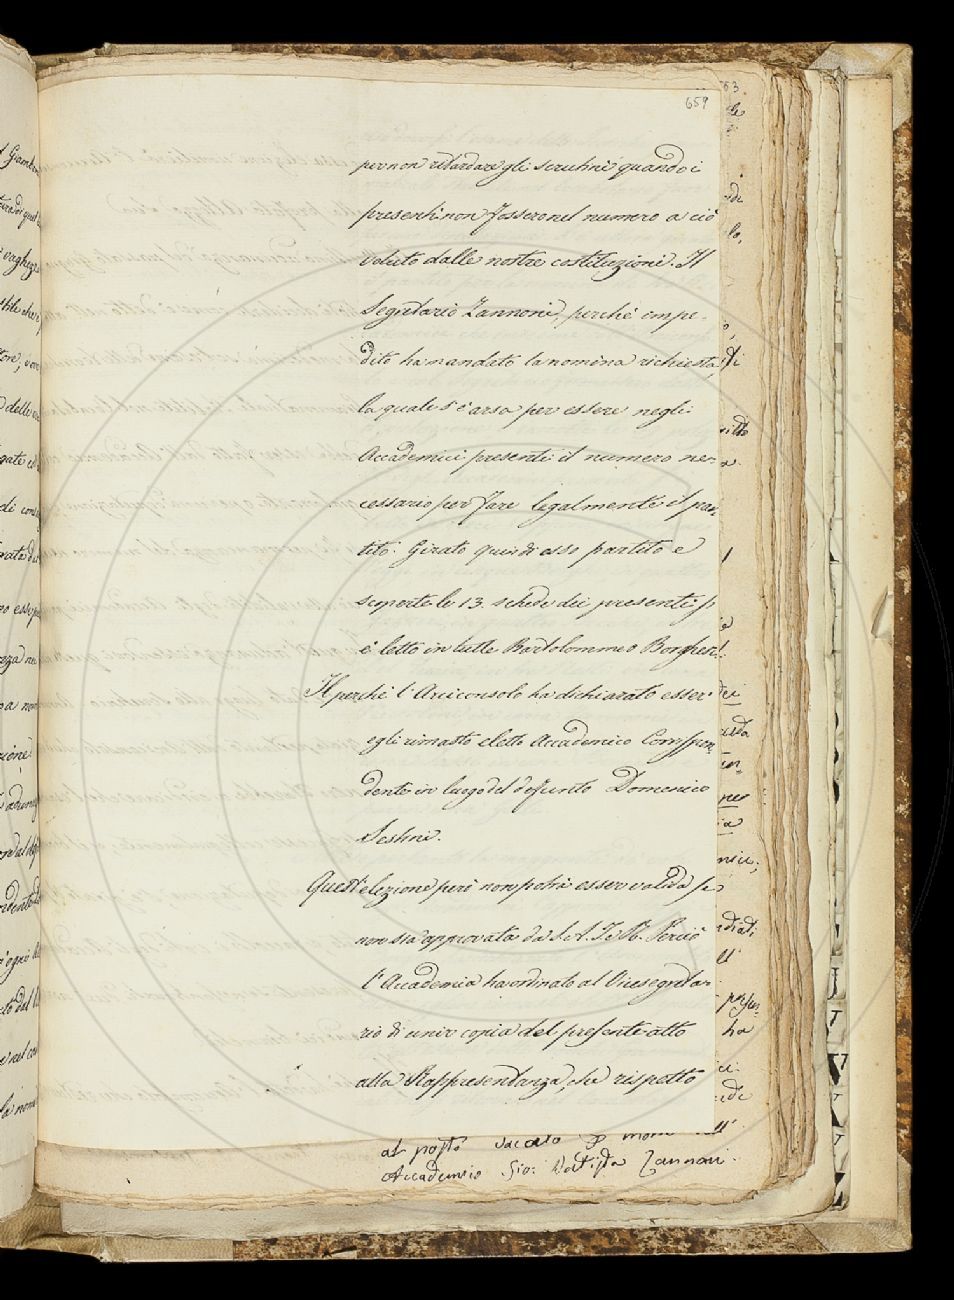 659
per non ritardare gli scrutini quando i
presenti non fossero nel numero a ciò
voluto dalle nostre costituzioni. Il
Segretario Zannoni, perchè impe-
dito ha mandato la nomina richiesta,
la quale s'è arsa per essere negli
Accademici presenti il numero ne-
cessario per fare legalmente il par
tito. Girato quindi esso partito e
scoperte le 13. schede dei presenti si
è letto in tutte Bartolommeo Borghesi.
Il perchè l'Arciconsolo ha dichiarato esser
egli rimasto eletto Accademico Corrispon-
dente in luogo del defunto Domenico
Sestini.
Quest'elezione però non potrà esser valida se
non sia approvata da S. A. I. e R. Perciò
l'Accademia ha ordinato al Vicesegreta-
rio di unir copia del presente atto
alla Rappresentanza, che rispetto
al posto vacato p
Accademico Gio: Batista Zannoni.